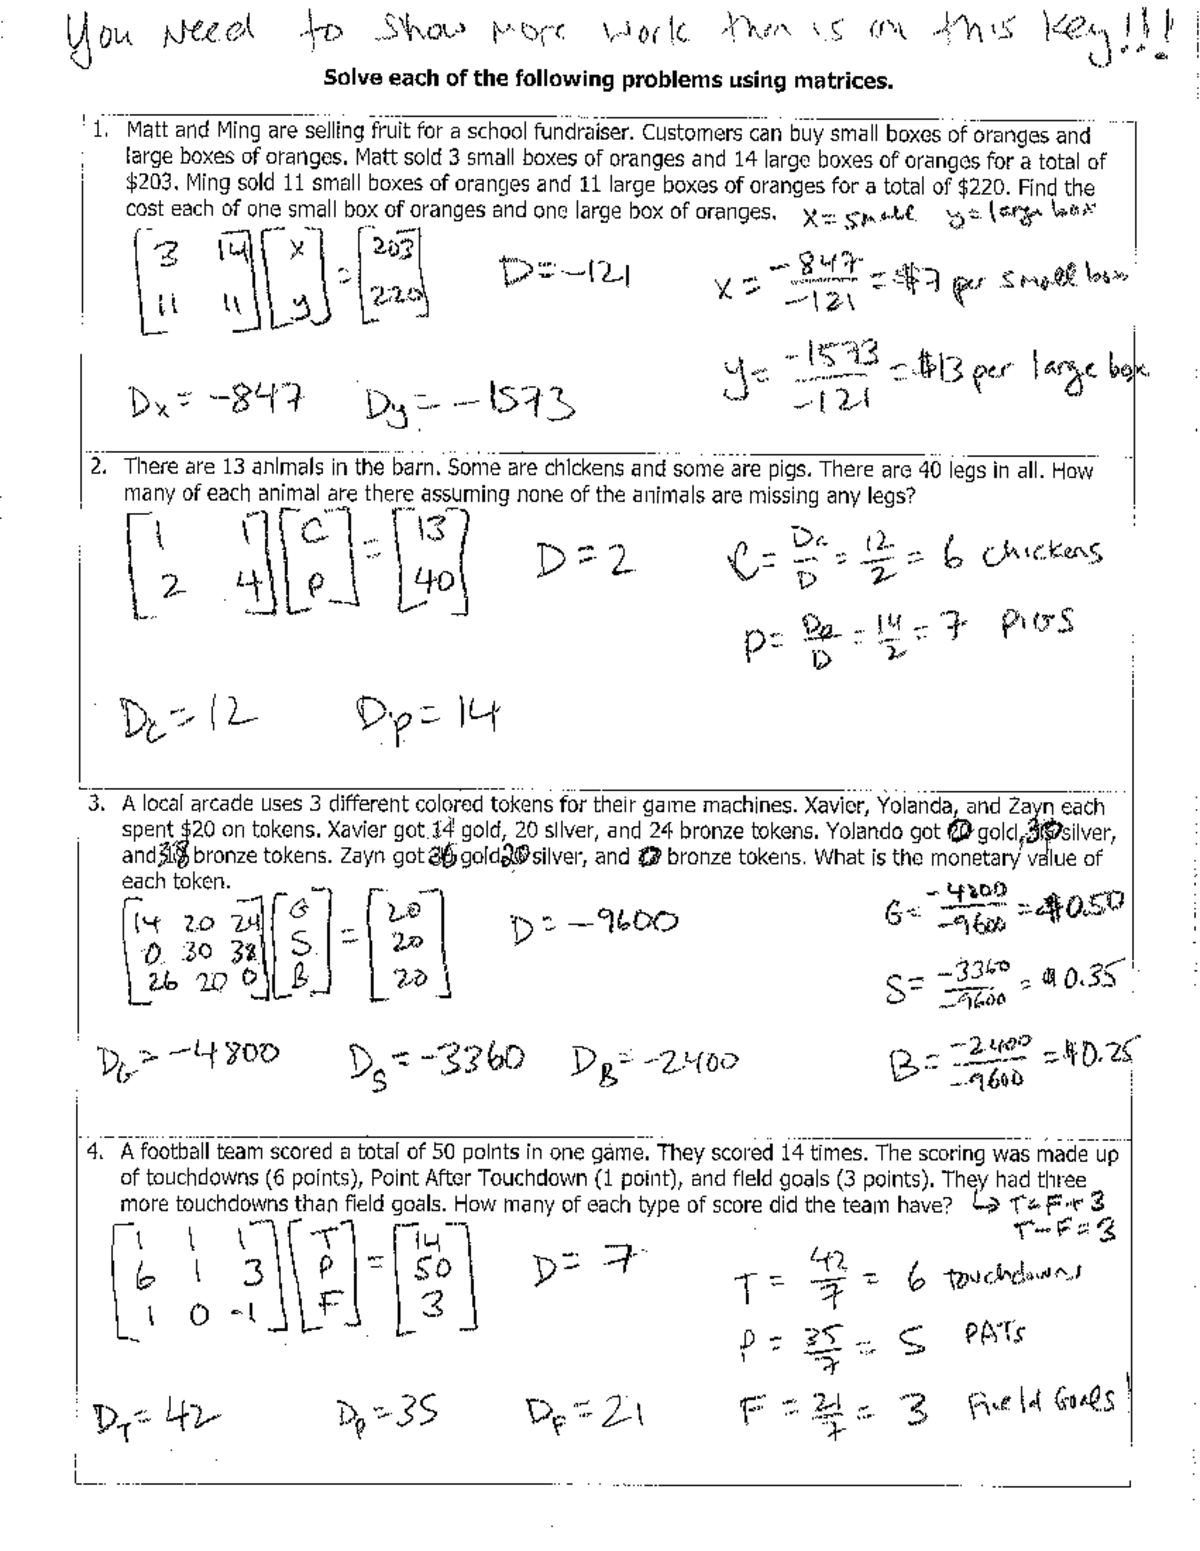 You Need to show more work then is on this key!!!
Solve each of the following problems using matrices.
1. Matt and Ming are selling fruit for a school fundraiser. Customers can buy small boxes of oranges and
large boxes of oranges. Matt sold 3 small boxes of oranges and 14 large boxes of oranges for a total of
$203. Ming sold 11 small boxes of oranges and 11 large boxes of oranges for a total of $220. Find the
cost each of one small box of oranges and one large box of oranges. x = small y = large box
[3 14] [x] = [203]
[11 11] [y] [220]
D = -121
x = -847/-121 = $7 per small box
y = -1573/-121 = $13 per large box
Dx = -847 Dy = -1573
2. There are 13 animals in the barn. Some are chickens and some are pigs. There are 40 legs in all. How
many of each animal are there assuming none of the animals are missing any legs?
[1 1] [C] = [13]
[2 4] [P] [40]
D = 2
C = Dc/D = 12/2 = 6 chickens
P = Dp/D = 14/2 = 7 PIGS
Dc = 12 Dp = 14
3. A local arcade uses 3 different colored tokens for their game machines. Xavier, Yolanda, and Zayn each
spent $20 on tokens. Xavier got 14 gold, 20 silver, and 24 bronze tokens. Yolando got 0 gold, 30 silver,
and 38 bronze tokens. Zayn got 26 gold 20 silver, and 0 bronze tokens. What is the monetary value of
each token.
[14 20 24] [G] = [20]
[0 30 38] [S] [20]
[26 20 0] [B] [20]
D = -9600
G = -4800/-9600 = $0.50
S = -3360/-9600 = $0.35
DG = -4800 DS = -3360 DB = -2400
B = -2400/-9600 = $0.25
4. A football team scored a total of 50 points in one game. They scored 14 times. The scoring was made up
of touchdowns (6 points), Point After Touchdown (1 point), and field goals (3 points). They had three
more touchdowns than field goals. How many of each type of score did the team have? ↳ T = F + 3
T - F = 3
[1 1 1] [T] = [14]
[6 1 3] [P] [50]
[1 0 -1] [F] [3]
D = 7
T = 42/7 = 6 touchdowns
P = 35/7 = 5 PATs
DT = 42 Dp = 35 DF = 21
F = 21/7 = 3 Field Goals